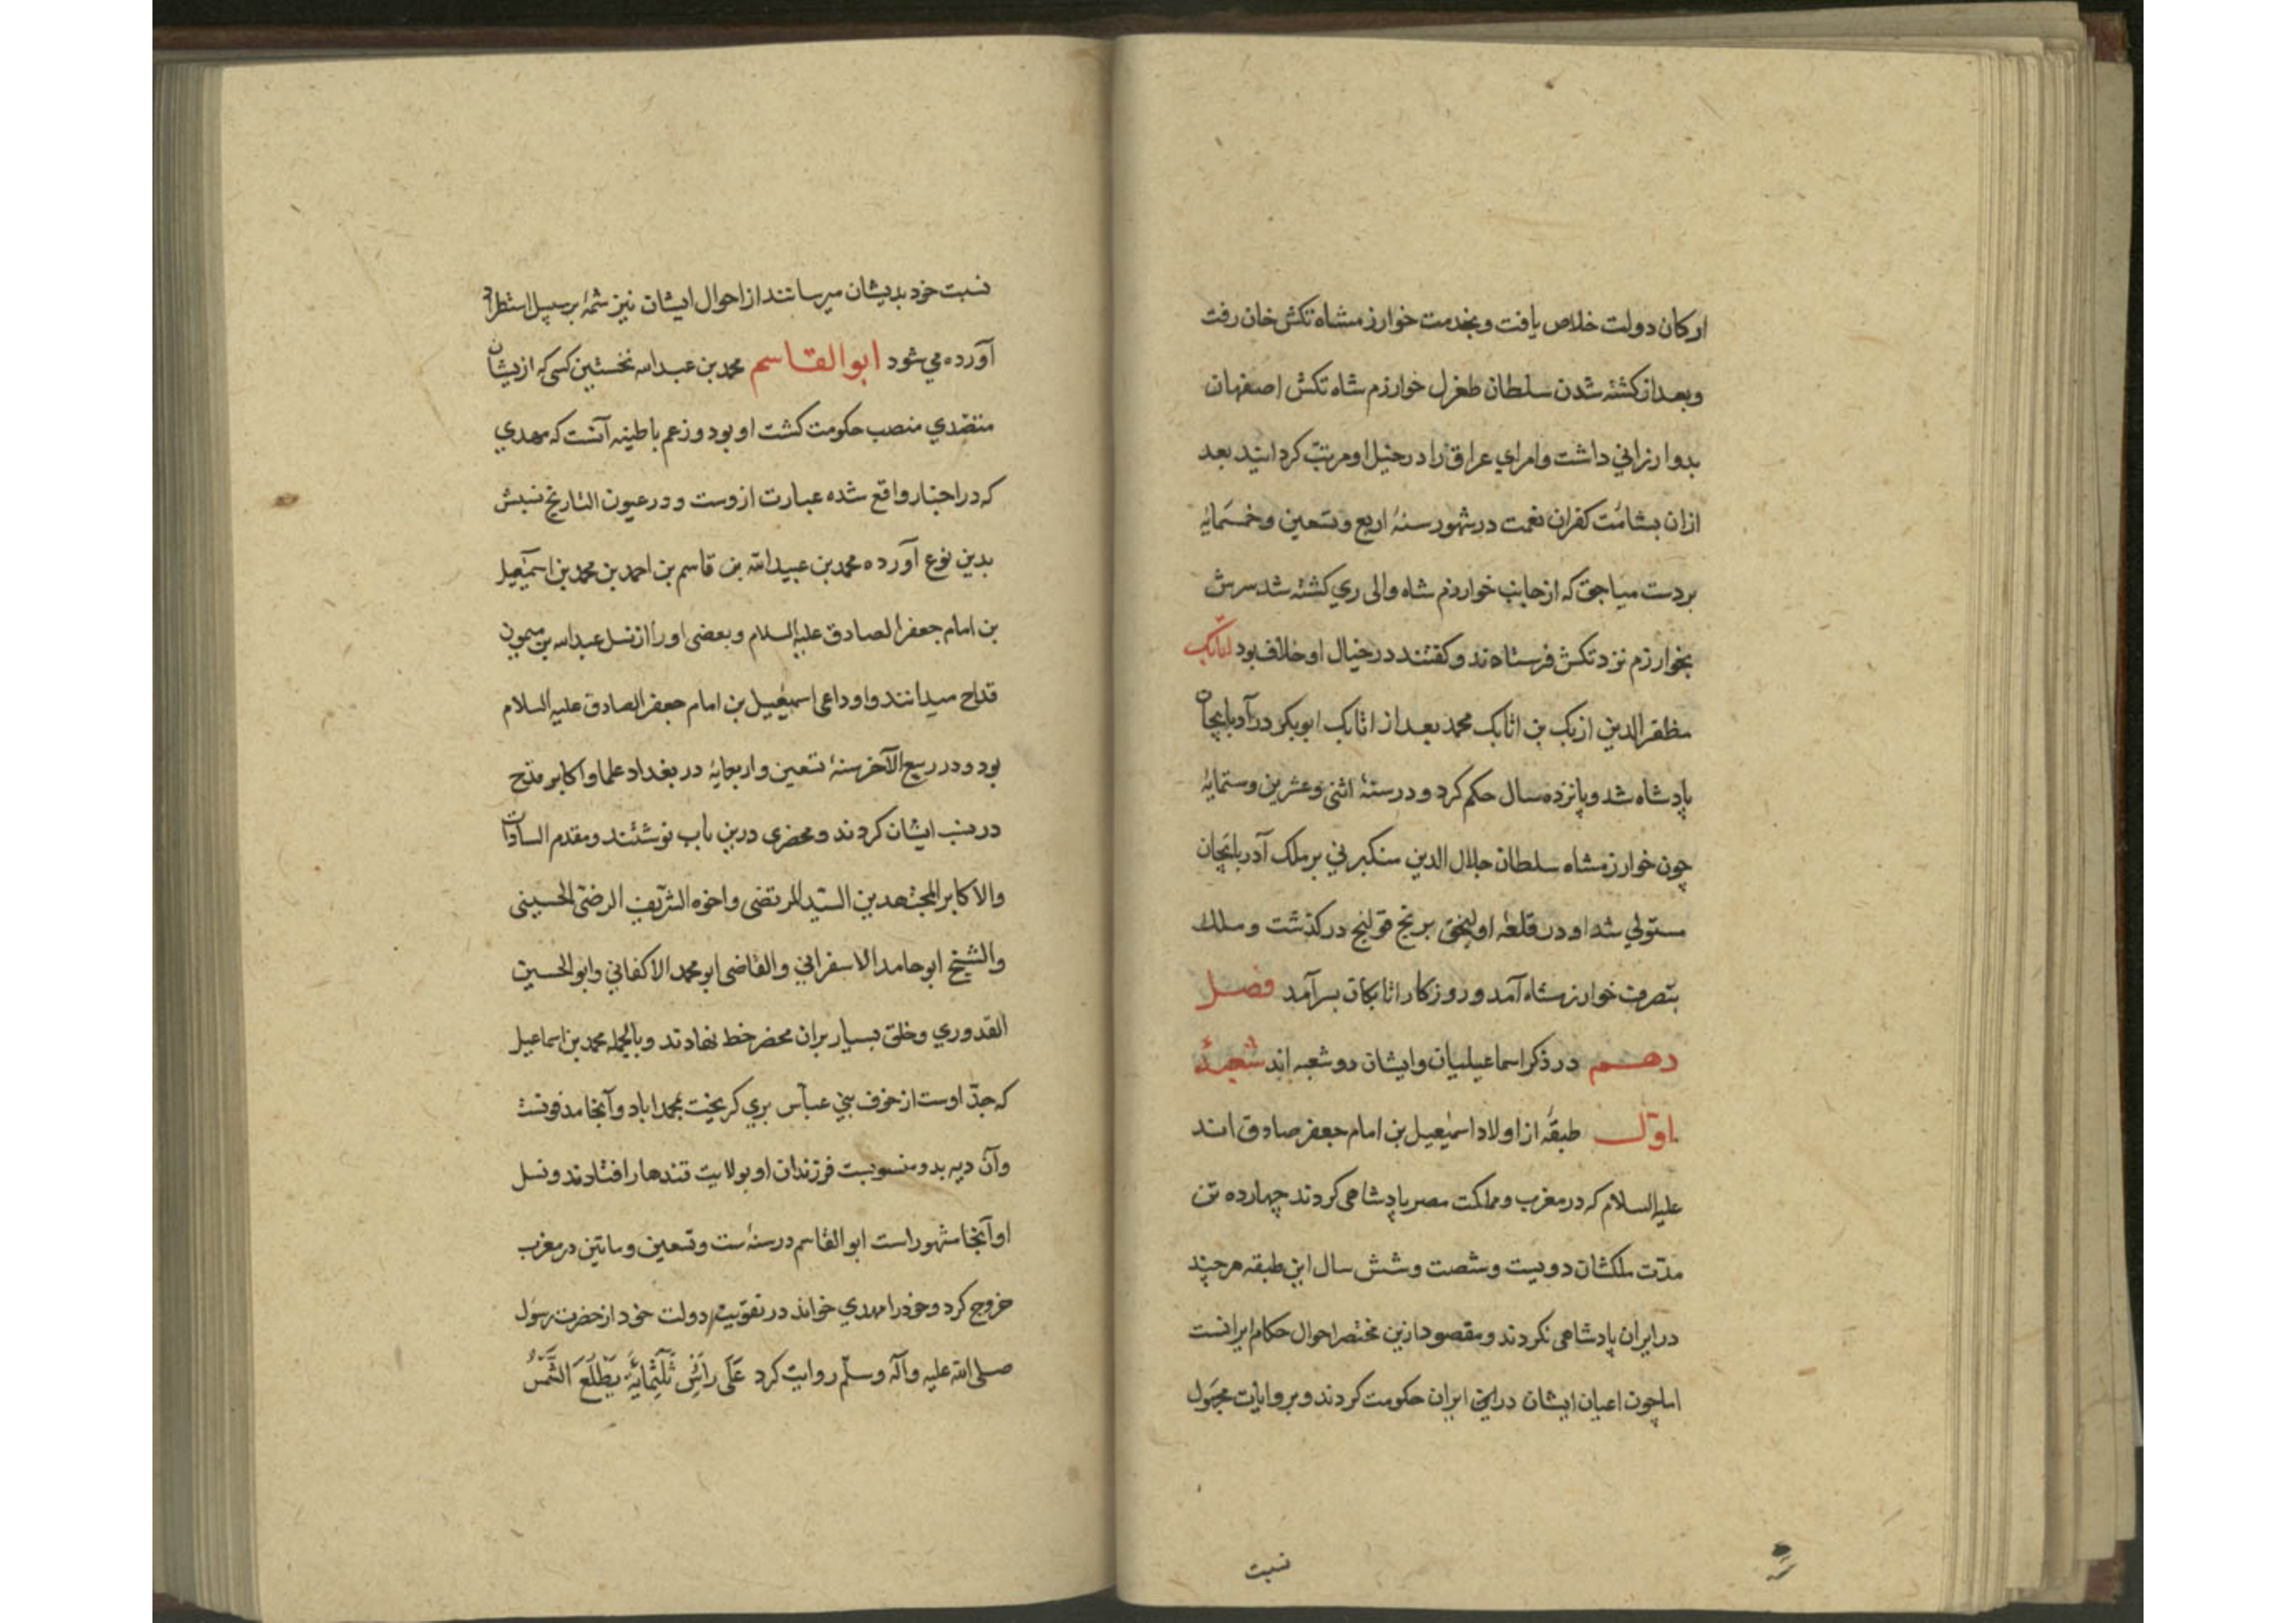 ارکان دولت خلاص یافت و بخدمت خوارزمشاه تکش خان رفت
و بعد از کشته شدن سلطان طغرل خوارزم شاه تکش اصفهان
بدو ارزانی داشت و امرای عراق را در خیل او مرتب کردانید بعد
ازان بشامت کفران نعمت در شهور سنهٔ اربع و تسعین و خمسمایه
بر دست میاجق که از جانب خوارزم شاه والی ری کشته شد سرش
بخوارزم نزد تکش فرستادند و کفتند در خیال او خلاف بود اتابک
مظفر الدین ازبک بن اتابک محمد بعد از اتابک ابوبکر در آدربایجان
پادشاه شد و پانزده سال حکم کرد و در سنهٔ اثنی و عشرین و ستمایه
چون خوارزمشاه سلطان جلال الدین منکبرنی بر ملک آدربایجان
مستولی شد او در قلعه برنج قولنج درکذشت و ملک
بتصرف خوارزمشاه آمد و روزکار اتابکان بسرآمد فصل
دهم در ذکر اسماعیلیان و ایشان دو شعبه اند شعبهٔ
اول طبقه از اولاد اسمعیل بن امام جعفر صادق اند
علیه السلام که در مغرب و مملکت مصر پادشاهی کردند چهارده تن
مدت ملکشان دویست و شصت و شش سال این طبقه هر چند
در ایران پادشاهی نکردند و مقصود ازین مختصر احوال حکام ایرانست
اما چون اعیان ایشان در ایران حکومت کردند و بروایات مجهول
نسبت
نسبت خود بدیشان میرسانند از احوال ایشان نیز شمهٔ بر سبیل استطراد
آورده می شود ابو القاسم محمد بن عبد الله نخستین کسی که ازیشان
متصدی منصب حکومت کشت او بود و زعم باطینه آنست که مهدی
که در اخبار واقع شده عبارت ازوست و در عیون التاریخ نسبش
بدین نوع آورده محمد بن عبید الله بن قاسم بن احمد بن محمد بن اسمعیل
بن امام جعفر الصادق علیه السلام و بعضی او را از نسل عبد الله بن میمون
قداح میدانند و او داعی اسمعیل بن امام جعفر الصادق علیه السلام
بود و در ربیع الآخر سنهٔ تسعین و اربعمایه در بغداد علما و اکابر قدح
در نسب ایشان کردند و محضری درین باب نوشتند و مقدم السادات
والاکابر المجتهدین السید المرتضی و اخوه الشریف الرضی الحسینی
والشیخ ابو حامد الاسفراینی والقاضی ابو محمد الاکفانی و ابو الحسین
القدوری و خلق بسیار بران محضر خط نهادند و بالجمله محمد بن اسماعیل
که جد اوست از خوف بنی عباس بری کریخت بمحمداباد و آنجا مدفونست
وآن دیه بدو منسوبست فرزندان او بولایت قندهار افتادند و نسل
او آنجا مشهور است ابو القاسم در سنهٔ ست و تسعین و ماتین در مغرب
خروج کرد و خود را مهدی خواند در تقویت دولت خود از حضرت رسول
صلی الله علیه و آله و سلم روایت کرد عَلَی رَأسِ ثَلٰثَمِایَةٍ یَطْلُعُ الشَّمْسُ